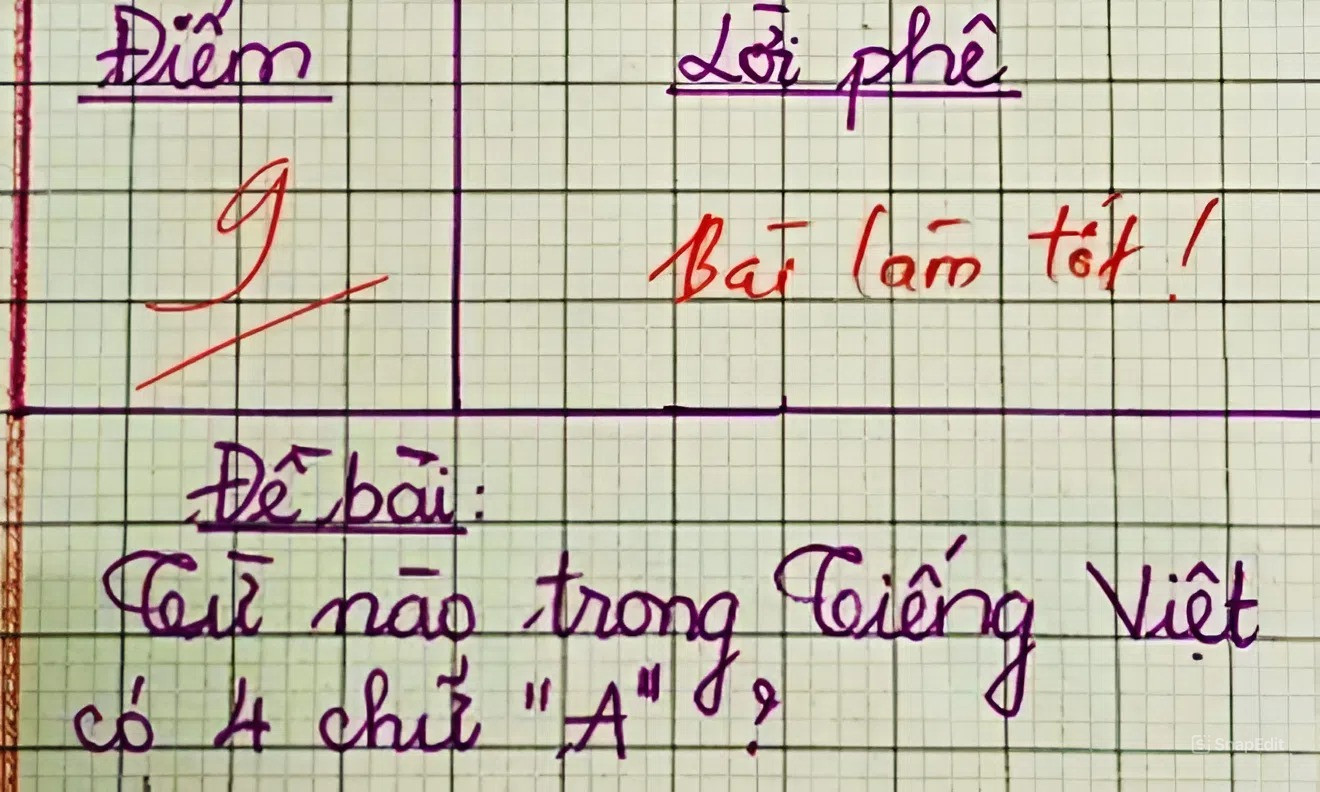 Điểm
Lời phê
9
Bài làm tốt!
Đề bài:
Từ nào trong Tiếng Việt
có 4 chữ "A"?
SnapEdit